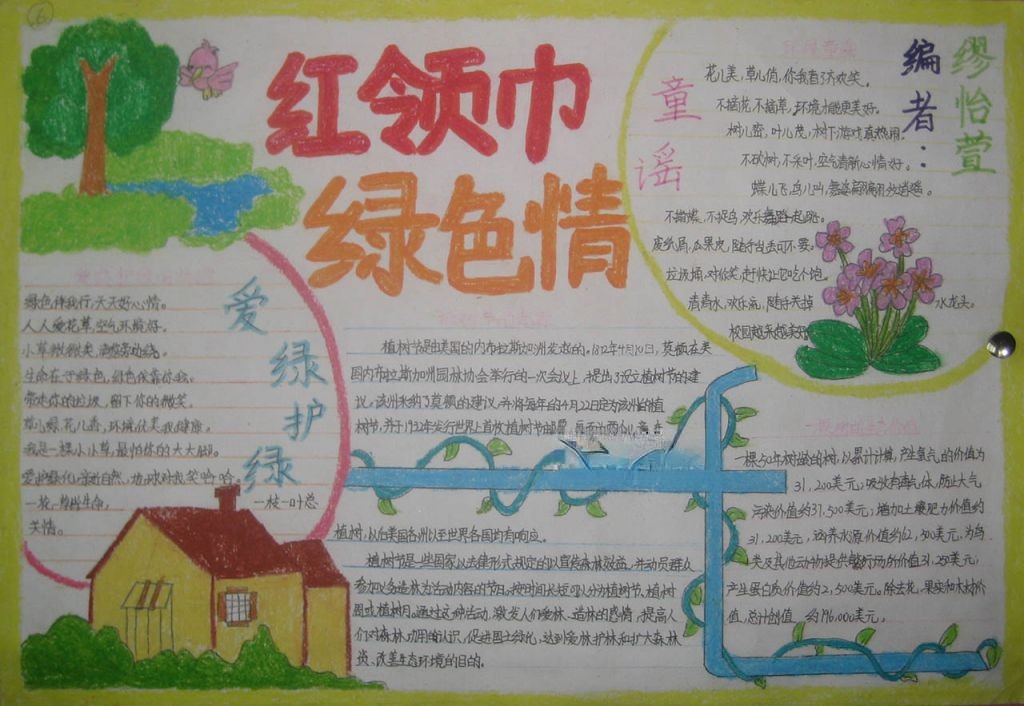 红领巾
绿色情
编者：
缪怡萱
童谣
花儿美，草儿俏，你我看了齐欢笑。
不摘花，不摘草，环境才能更美好。
树儿密，叶儿茂，树下游戏真热闹。
不砍树，不采叶，空气清新心情好。
蝶儿飞，鸟儿叫，
不捕蝶，不捉鸟，欢乐舞蹈一起跳。
废纸屑，瓜果皮，随手乱丢可不要。
垃圾桶，对你笑，赶快让它吃个饱。
清清水，欢乐流，随手关掉水龙头。
校园越来越美好
爱绿护绿
绿色伴我行，天天好心情。
人人爱花草，空气环境好。
小草微微笑，请您旁边绕。
生命在于绿色，绿色依靠你我。
带走你的垃圾，留下你的微笑。
草儿绿，花儿香，环境优美我健康。
我是一棵小小草，最怕你的大大脚。
爱护绿化，亲近自然，地球对我笑哈哈。
一花一草皆生命，一枝一叶总
关情。
植树节是由美国的内布拉斯加州发起的。1872年4月10日，莫顿在美
国内布拉斯加州园林协会举行的一次会议上，提出了设立植树节的建
议。该州采纳了莫顿的建议，并将每年的4月22日定为该州的植
树节，并于1932年发行世界上首枚植树节邮票，画面为两个儿童在
植树，以后美国各州以至世界各国均有响应。
植树节是一些国家以法律形式规定的以宣传森林效益，并动员群众
参加义务造林为活动内容的节日。按时间长短可以分为植树节、植树
周或植树月。通过这种活动，激发人们爱林、造林的感情，提高人
们对森林功用的认识，促进国土绿化，达到爱林护林和扩大森林
资、改善生态环境的目的。
一棵50年树龄的树，以累计计算，产生氧气的价值为
31,200美元；吸收有毒气体，防止大气
污染价值约31,500美元；增加土壤肥力价值约
31,200美元；涵养水源价值约12,500美元，为鸟
类及其他动物提供繁衍场所价值31,250美元，
产生蛋白质价值约2,500美元。除去花、果实和木材价
值，总计创值约196,000美元。